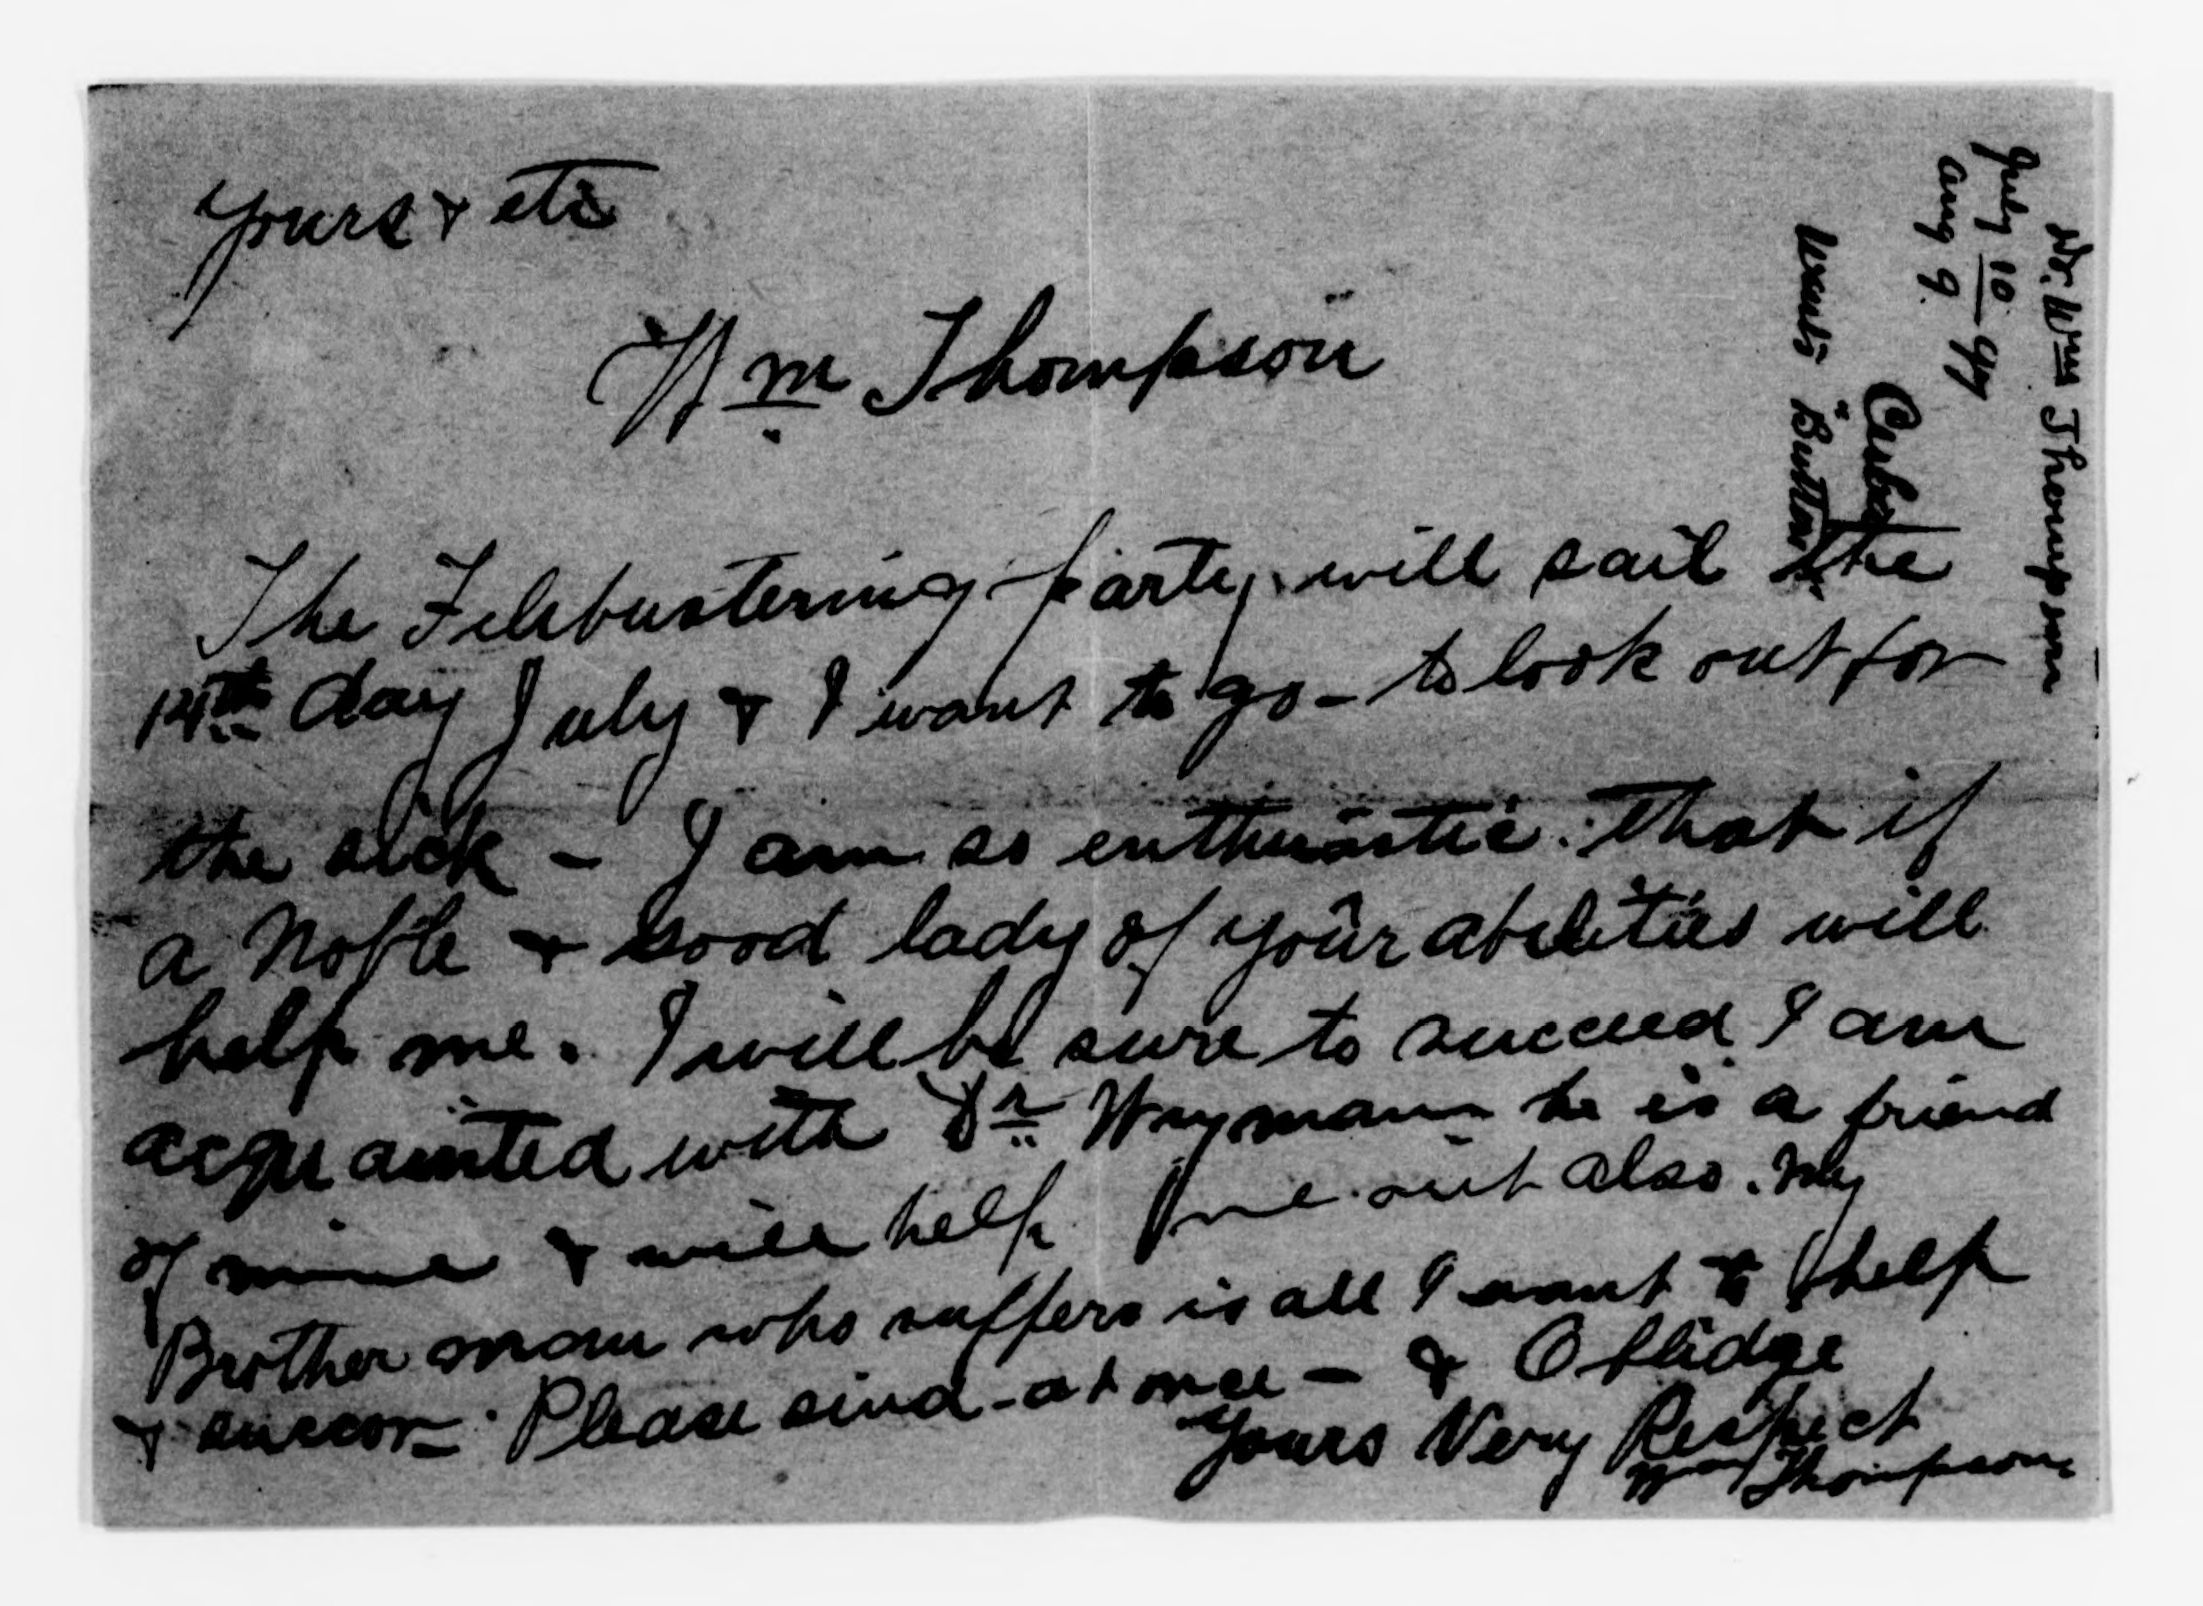 Yours & etc
Wm Thompson
The Filibustering party will sail the
14th day July & I want to go - to look out for
the sick - I am so enthusiastic. that if
a Noble & Good lady of your abilities will
help me. I will be sure to succeed I am
acquainted with Dr Wyman he is a friend
of mine & will help me out also. My
Brother man who suffers is all I want to help
& succor. Please send - at once - & Oblidge
Yours Very Respect
Wm Thompson
Dr. Wm Thompson
July 10 97
Aug 9.
Cuba
Wants "Button"